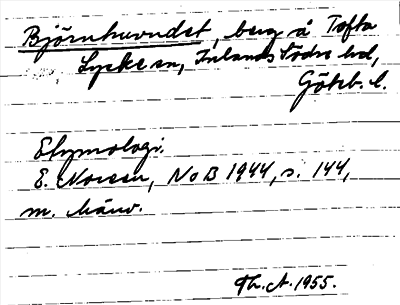 Björnhuvudet, berg å Tofta
Lycke sn, Inlands Södre hd,
Göteb. l.
Etymologi.
E. Noreen, NoB 1944, s. 144,
m. hänv.
Th. A. 1955.